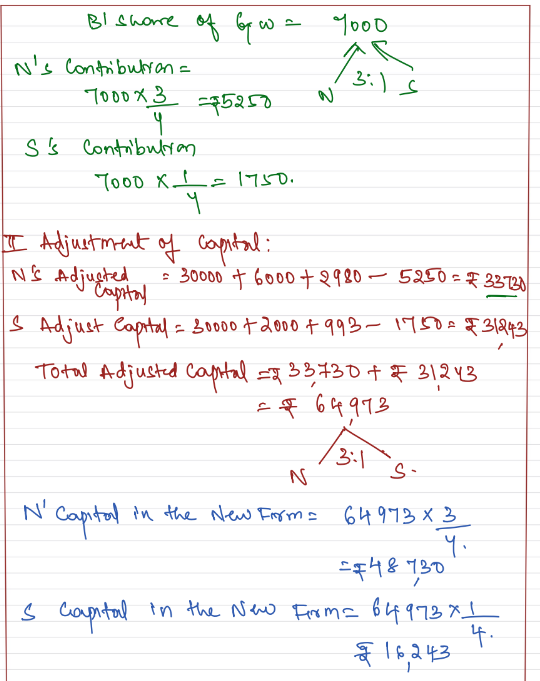 B's share of G/W = 7000
N 3:1 S
N's Contribution =
7000 × 3/4 = ₹5250
S's Contribution
7000 × 1/4 = 1750.
II Adjustment of Capital:
N's Adjusted Capital = 30000 + 6000 + 2980 - 5250 = ₹ 33730
S Adjust Capital = 30000 + 2000 + 993 - 1750 = ₹ 31,243
Total Adjusted Capital = ₹ 33,730 + ₹ 31,243
= ₹ 64,973
N 3:1 S.
N' Capital in the New Firm = 64973 × 3/4.
= ₹48,730
S Capital in the New Firm = 64973 × 1/4.
₹ 16,243